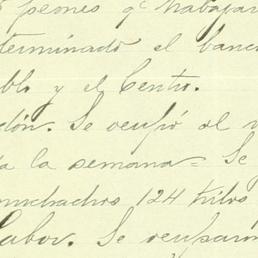 peones qe trabajar
terminado el banc
blo y el Centro.
ón. Se ocupó al
a la semana = Se
muchachos 124 kilos
Labor. Se ocuparon